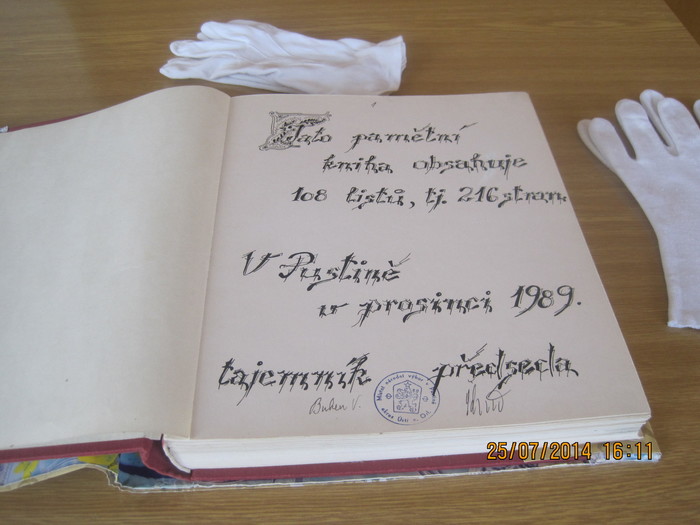 Tato pamětní
kniha obsahuje
108 listů, tj. 216 stran.
V Pustině
v prosinci 1989.
tajemník předseda
V.
Místní národní výbor v
okres Ústí n. Orl.
25/07/2014 16:11